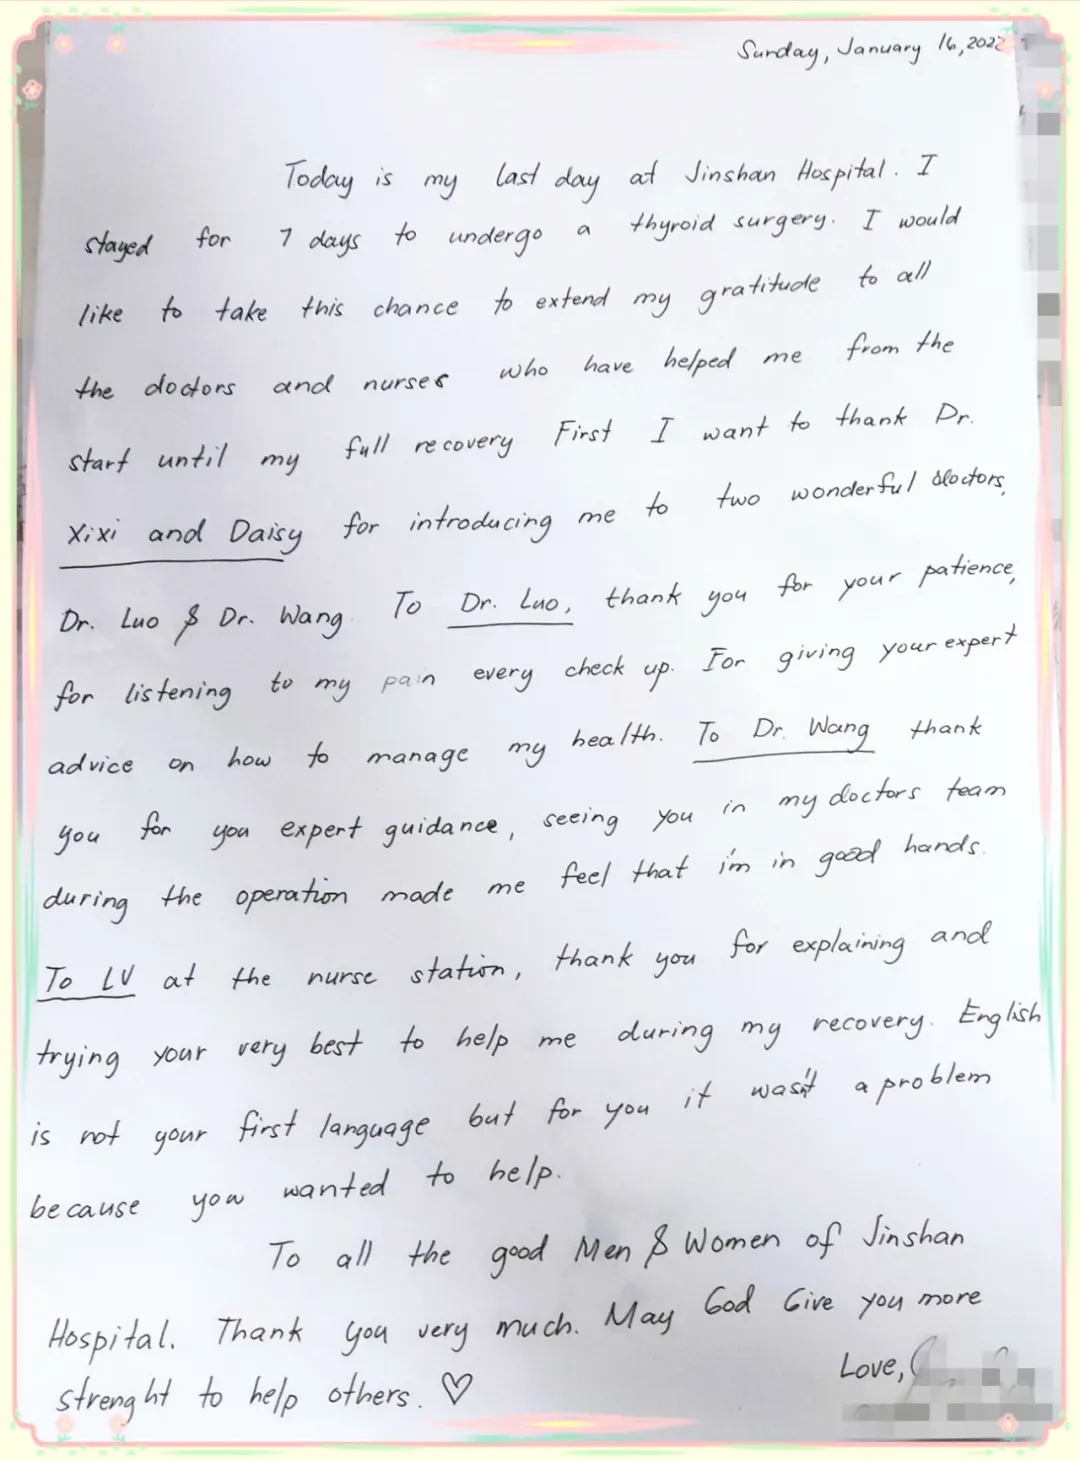 Sunday, January 16, 2022
Today is my last day at Jinshan Hospital. I
stayed for 7 days to undergo a thyroid surgery. I would
like to take this chance to extend my gratitude to all
the doctors and nurses who have helped me from the
start until my full recovery First I want to thank Dr.
Xixi and Daisy for introducing me to two wonderful doctors,
Dr. Luo & Dr. Wang. To Dr. Luo, thank you for your patience,
for listening to my pain every check up. For giving your expert
advice on how to manage my health. To Dr. Wang thank
you for you expert guidance, seeing you in my doctors team
during the operation made me feel that i'm in good hands.
To LV at the nurse station, thank you for explaining and
trying your very best to help me during my recovery. English
is not your first language but for you it wasn't a problem
because you wanted to help.
To all the good Men & Women of Jinshan
Hospital. Thank you very much. May God Give you more
strenght to help others. ♡
Love,